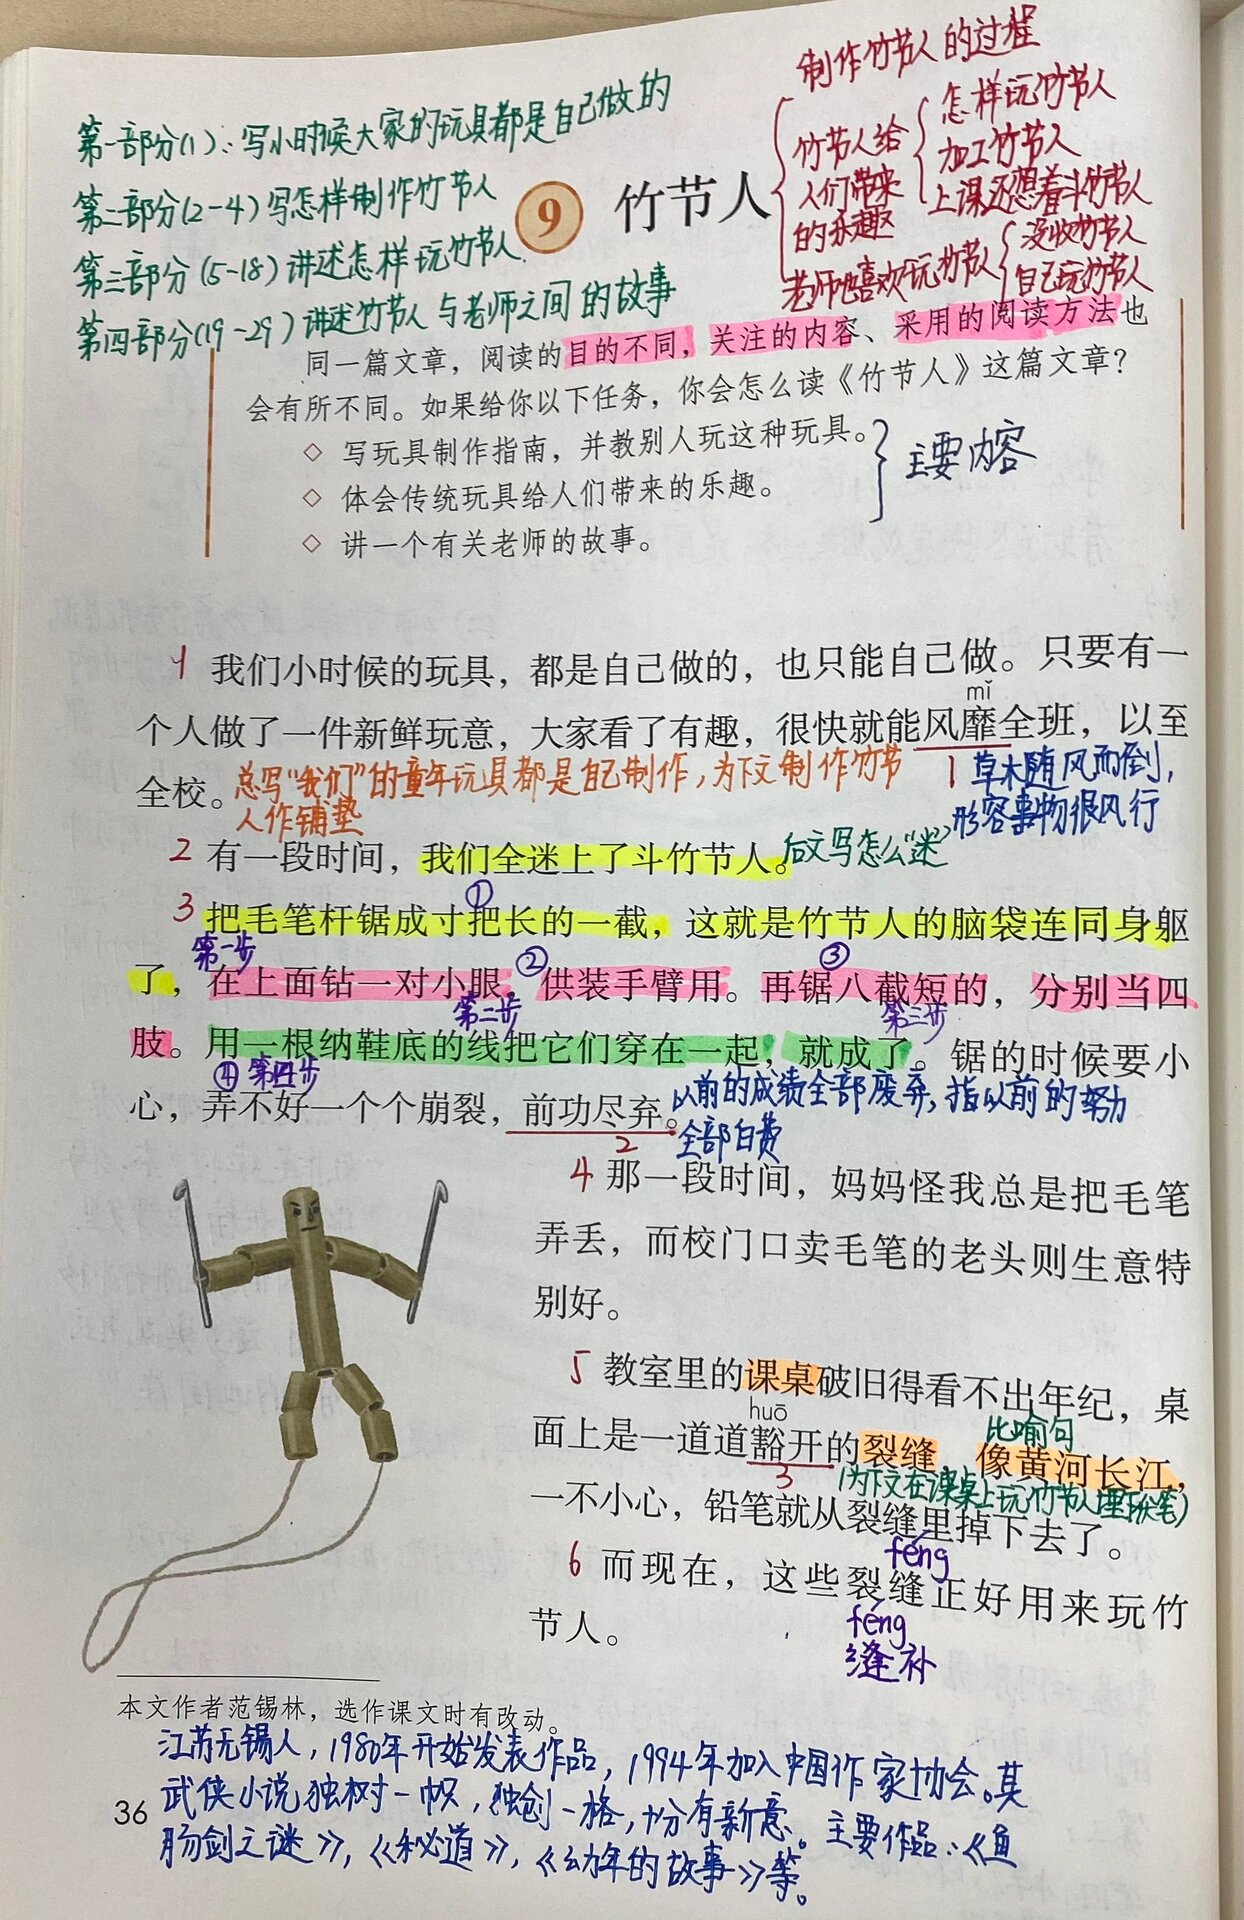 制作竹节人的过程
竹节人给
人们带来
的乐趣
怎样玩竹节人
加工竹节人
上课还想着斗竹节人
老师也喜欢玩竹节人
没收竹节人
自己玩竹节人
第一部分(1):写小时候大家的玩具都是自己做的
第二部分(2-4)写怎样制作竹节人
第三部分(5-18)讲述怎样玩竹节人.
第四部分(19-29)讲述竹节人与老师之间的故事
9 竹节人
同一篇文章，阅读的目的不同，关注的内容、采用的阅读方法也
会有所不同。如果给你以下任务，你会怎么读《竹节人》这篇文章？
◇ 写玩具制作指南，并教别人玩这种玩具。
◇ 体会传统玩具给人们带来的乐趣。
◇ 讲一个有关老师的故事。
主要内容
1 我们小时候的玩具，都是自己做的，也只能自己做。只要有一
mǐ
个人做了一件新鲜玩意，大家看了有趣，很快就能风靡全班，以至
全校。
总写"我们"的童年玩具都是自己制作,为下文制作竹节
人作铺垫
1 草木随风而倒,
形容事物很风行
2 有一段时间，我们全迷上了斗竹节人。
后文写怎么"迷"
①
3 把毛笔杆锯成寸把长的一截，这就是竹节人的脑袋连同身躯
第一步 ② ③
了，在上面钻一对小眼，供装手臂用。再锯八截短的，分别当四
第二步 第三步
肢。用一根纳鞋底的线把它们穿在一起，就成了。锯的时候要小
④ 第四步
心，弄不好一个个崩裂，前功尽弃。
2
以前的成绩全部废弃,指以前的努力
全部白费
4 那一段时间，妈妈怪我总是把毛笔
弄丢，而校门口卖毛笔的老头则生意特
别好。
5 教室里的课桌破旧得看不出年纪，桌
huō
比喻句
面上是一道道豁开的裂缝 像黄河长江，
3
(为下文在课桌上玩竹节人埋伏笔)
一不小心，铅笔就从裂缝里掉下去了。
féng
6 而现在，这些裂缝正好用来玩竹
节人。
féng
缝补
本文作者范锡林，选作课文时有改动。
江苏无锡人,1980年开始发表作品,1994年加入中国作家协会。其
武侠小说独树一帜,独创一格,十分有新意。主要作品:《鱼
肠剑之谜》,《秘道》,《幼年的故事》等。
36